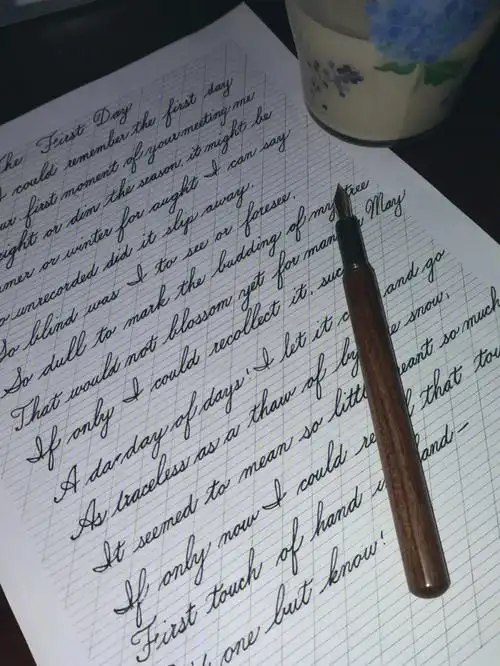 The First Day
I could remember the first day
our first moment of your meeting me
bright or dim the season, it might be
mer or winter for aught I can say
o unrecorded did it slip away,
So blind was I to see or foresee,
So dull to mark the budding of my tree
That would not blossom yet for man May
If only I could recollect it, suc
A da day of days! I let it c and go
As traceless as a thaw of by e snow,
It seemed to mean so littl meant so much
If only now I could re l that tou
First touch of hand i hand-
one but know!